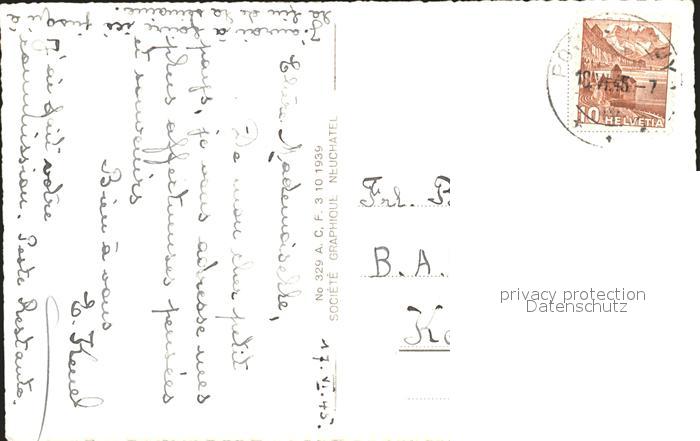 Chère Mademoiselle,
De mon cher petit
pays, je vous adresse mes
plus affectueuses pensées
et souvenirs
Bien à vous
J'ai fait votre
commission. Poste Restante.
J'aurai à faire ici jusqu'à
la fin de la semaine.
No 329 A. C. F. 3 10 1939
SOCIÉTÉ GRAPHIQUE NEUCHATEL
17. VI. 45.
HELVETIA
10
18.VI.45-7
Frl.
B. A.
privacy protection
Datenschutz